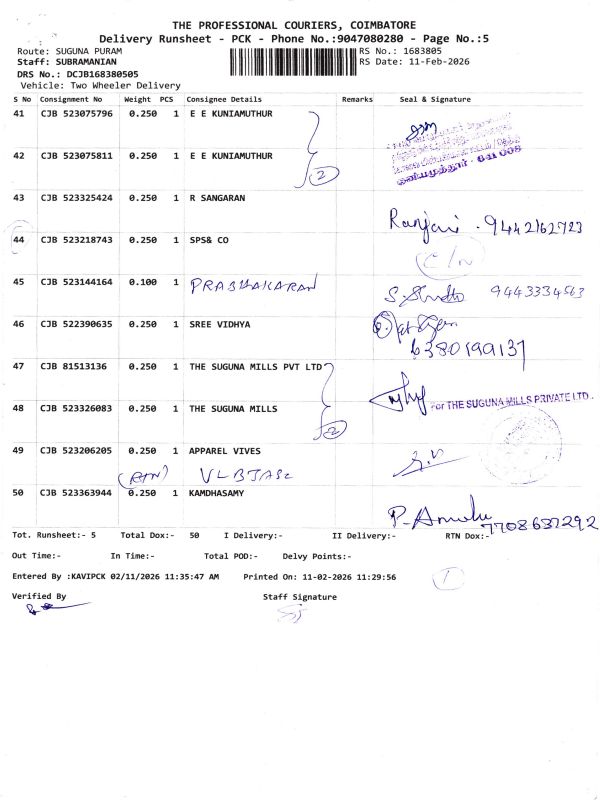 THE PROFESSIONAL COURIERS, COIMBATORE
Delivery Runsheet - PCK - Phone No.:9047080280 - Page No.:5
Route: SUGUNA PURAM
RS No.: 1683805
Staff: SUBRAMANIAN
RS Date: 11-Feb-2026
DRS No.: DCJB168380505
Vehicle: Two Wheeler Delivery
S No Consignment No Weight PCS Consignee Details Remarks Seal & Signature
41 CJB 523075796 0.250 1 E E KUNIAMUTHUR
42 CJB 523075811 0.250 1 E E KUNIAMUTHUR
2
43 CJB 523325424 0.250 1 R SANGARAN
Ranjani . 9442162723
44 CJB 523218743 0.250 1 SPS& CO
C/n
45 CJB 523144164 0.100 1 PRABHAKARAN
9443334563
46 CJB 522390635 0.250 1 SREE VIDHYA
6380199137
47 CJB 81513136 0.250 1 THE SUGUNA MILLS PVT LTD
For THE SUGUNA MILLS PRIVATE LTD.,
48 CJB 523326083 0.250 1 THE SUGUNA MILLS
2
49 CJB 523206205 0.250 1 APPAREL VIVES
(RTN) VLBJASC
50 CJB 523363944 0.250 1 KAMDHASAMY
7708637292
Tot. Runsheet:- 5 Total Dox:- 50 I Delivery:- II Delivery:- RTN Dox:-
Out Time:- In Time:- Total POD:- Delvy Points:-
Entered By :KAVIPCK 02/11/2026 11:35:47 AM Printed On: 11-02-2026 11:29:56
Verified By Staff Signature